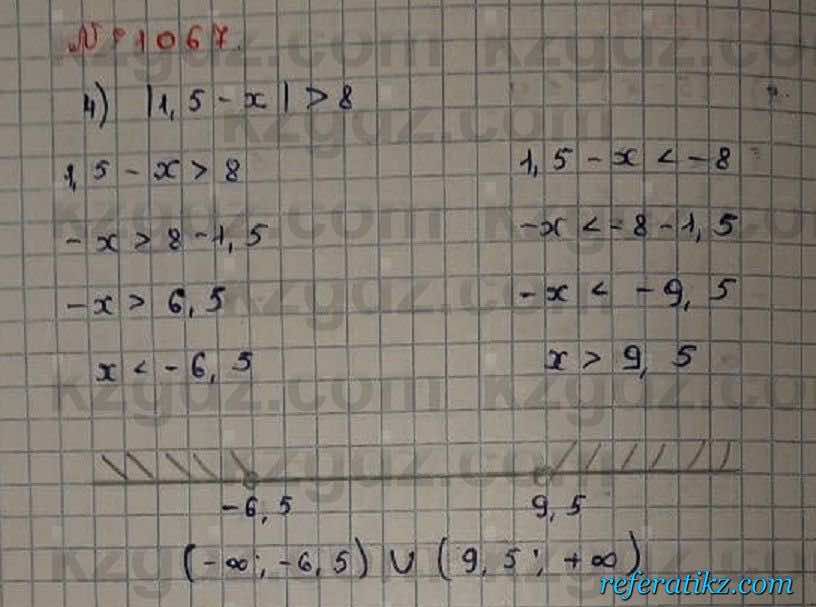 № 1067.
4) |1,5 - x| > 8
1,5 - x > 8
- x > 8 - 1,5
- x > 6,5
x < - 6,5
1,5 - x < - 8
- x < - 8 - 1,5
- x < - 9,5
x > 9,5
-6,5 9,5
(-∞; -6,5) ∪ (9,5; +∞)
kzgdz.com
referatikz.com